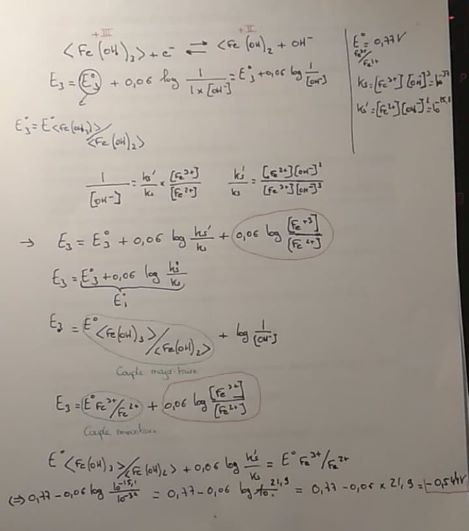 +III +II
<Fe(OH)2> + e- ⇌ <Fe(OH)2 + OH-
E° Fe3+/Fe2+ = 0,77V
E3 = E°3 + 0,06 log 1/(1×[OH-]) = E°3 + 0,06 log 1/[OH-]
ks = [Fe3+][OH-]3 =
ks' = [Fe2+][OH-]2 =
E°3 = E°<Fe(OH)3>/<Fe(OH)2>
1/[OH-] = ks'/ks × [Fe3+]/[Fe2+] ks'/ks = [Fe2+][OH-]2/[Fe3+][OH-]3
→ E3 = E°3 + 0,06 log ks'/ks + 0,06 log [Fe+3]/[Fe2+]
E3 = E°3 + 0,06 log ks'/ks
E3 = E°<Fe(OH)3>/<Fe(OH)2> + log 1/[OH-]
Couple majoritaire
E3 = E°Fe3+/Fe2+ + 0,06 log [Fe3+]/[Fe2+]
Couple minoritaire
E°<Fe(OH)3>/<Fe(OH)2> + 0,06 log ks'/ks = E°Fe3+/Fe2+
⇔ 0,77 - 0,06 log = 0,77 - 0,06 log 10^21,9 = 0,77 - 0,06 × 21,9 = -0,54V